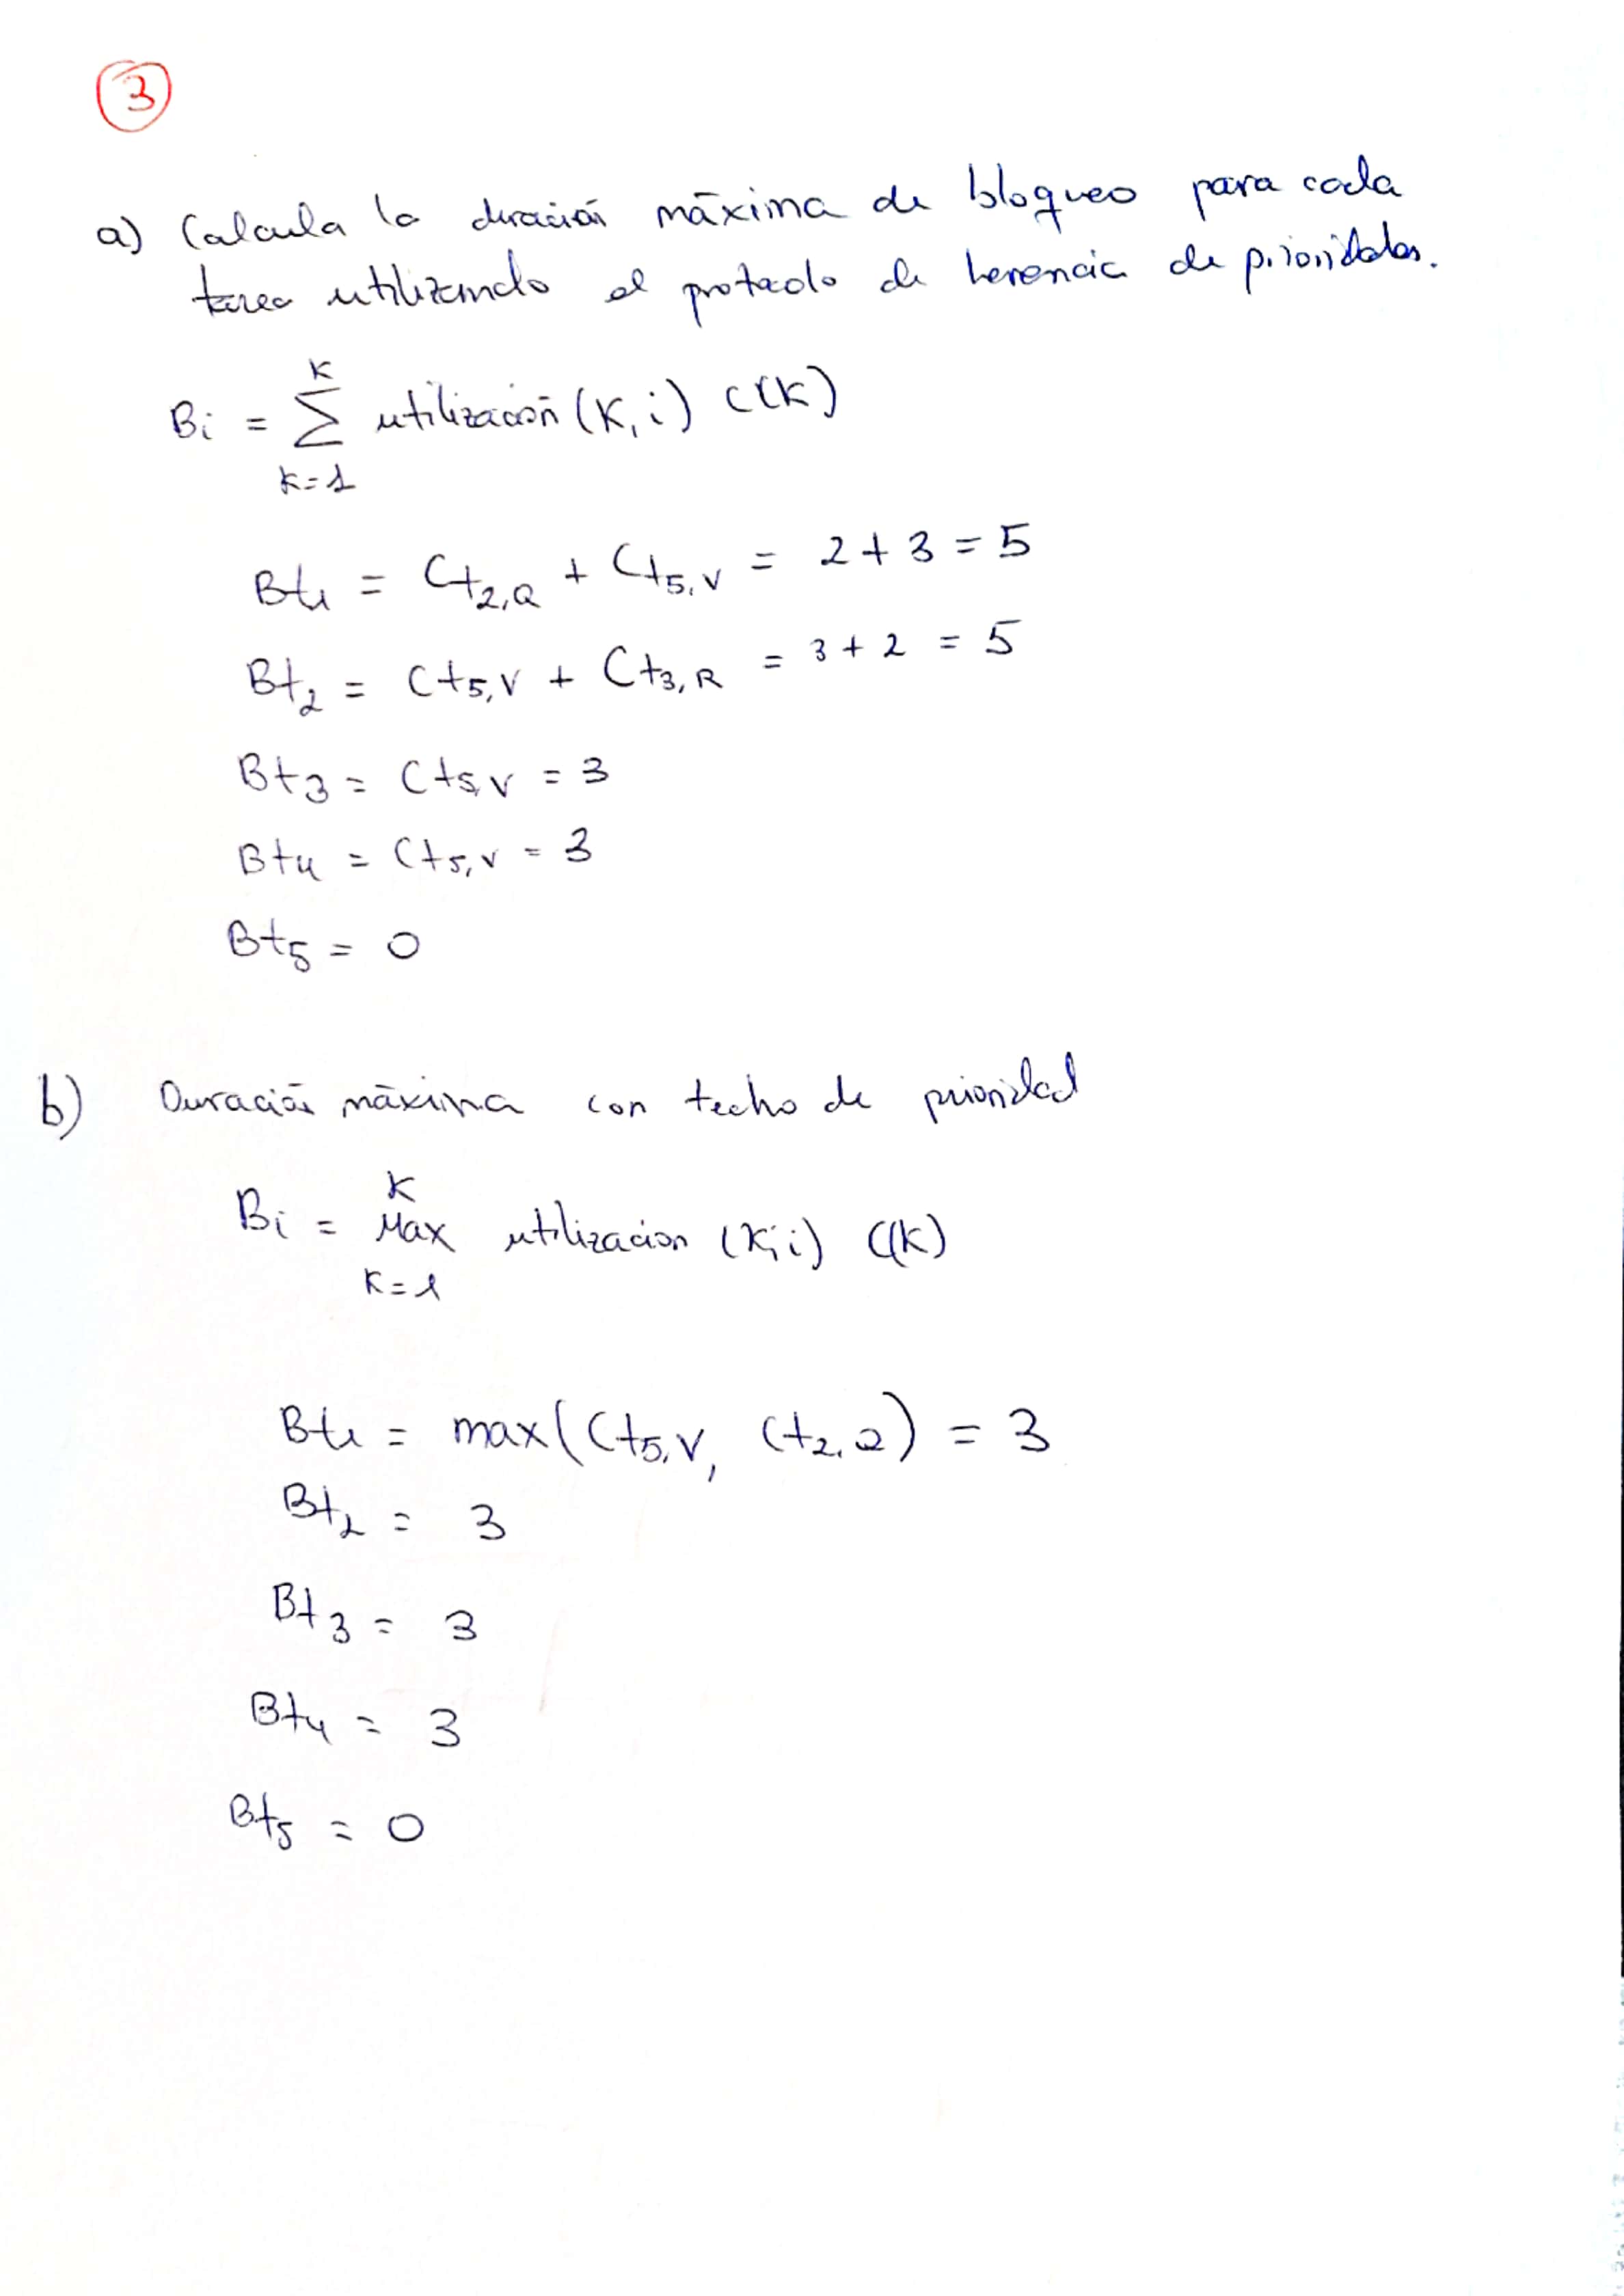 3
a) Calcula la duración máxima de bloqueo para cada
tarea utilizando el protocolo de herencia de prioridades.
Bi = Σ(k=1..K) utilización (K, i) C(K)
Bt1 = Ct2,Q + Ct5,V = 2 + 3 = 5
Bt2 = Ct5,V + Ct3,R = 3 + 2 = 5
Bt3 = Ct5,V = 3
Bt4 = Ct5,V = 3
Bt5 = 0
b) Duración máxima con techo de prioridad
Bi = Max(k=1..K) utilizacion (K, i) C(K)
Bt1 = max(Ct5,V, Ct2,Q) = 3
Bt2 = 3
Bt3 = 3
Bt4 = 3
Bt5 = 0